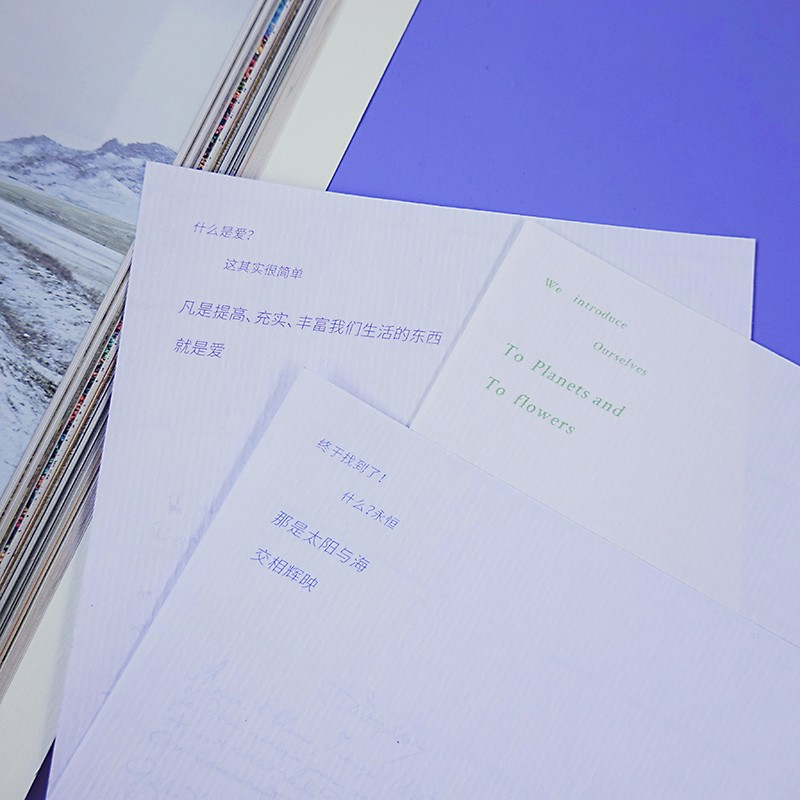 什么是爱？
这其实很简单
凡是提高、充实、丰富我们生活的东西
就是爱
We introduce
Ourselves
To Planets and
To flowers
终于找到了！
什么？永恒
那是太阳与海
交相辉映